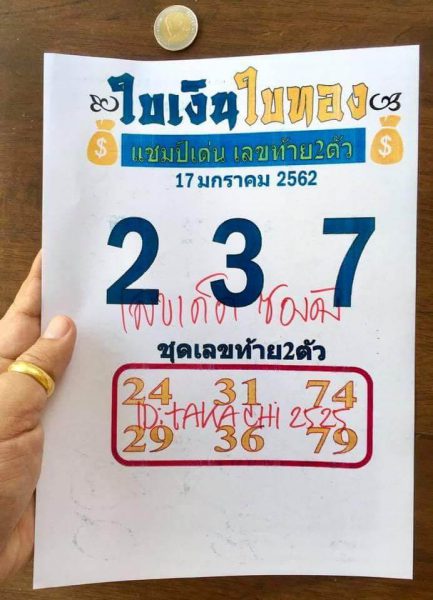 ใบเงินใบทอง
$ $
แชมป์เด่น เลขท้าย2ตัว
17 มกราคม 2562
2 3 7
ซองดัง
ชุดเลขท้าย2ตัว
24 31 74
ID: TAKACHI 2525
29 36 79